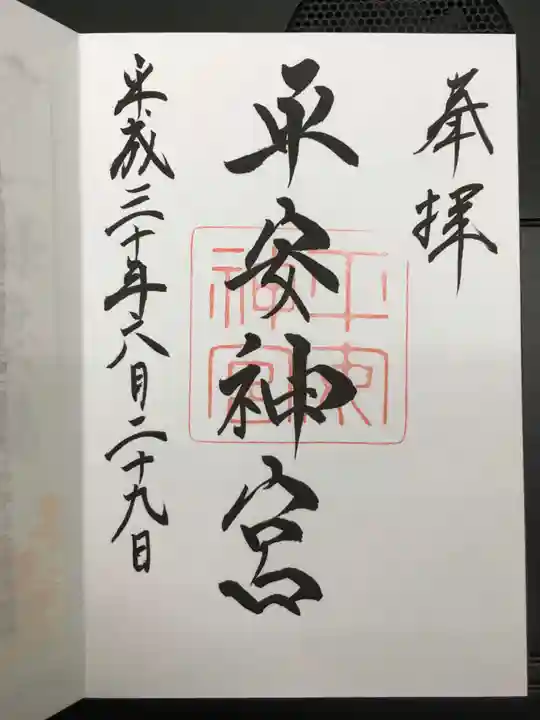 奉拝
平安神宮
平成三十年六月二十九日
平安神宮